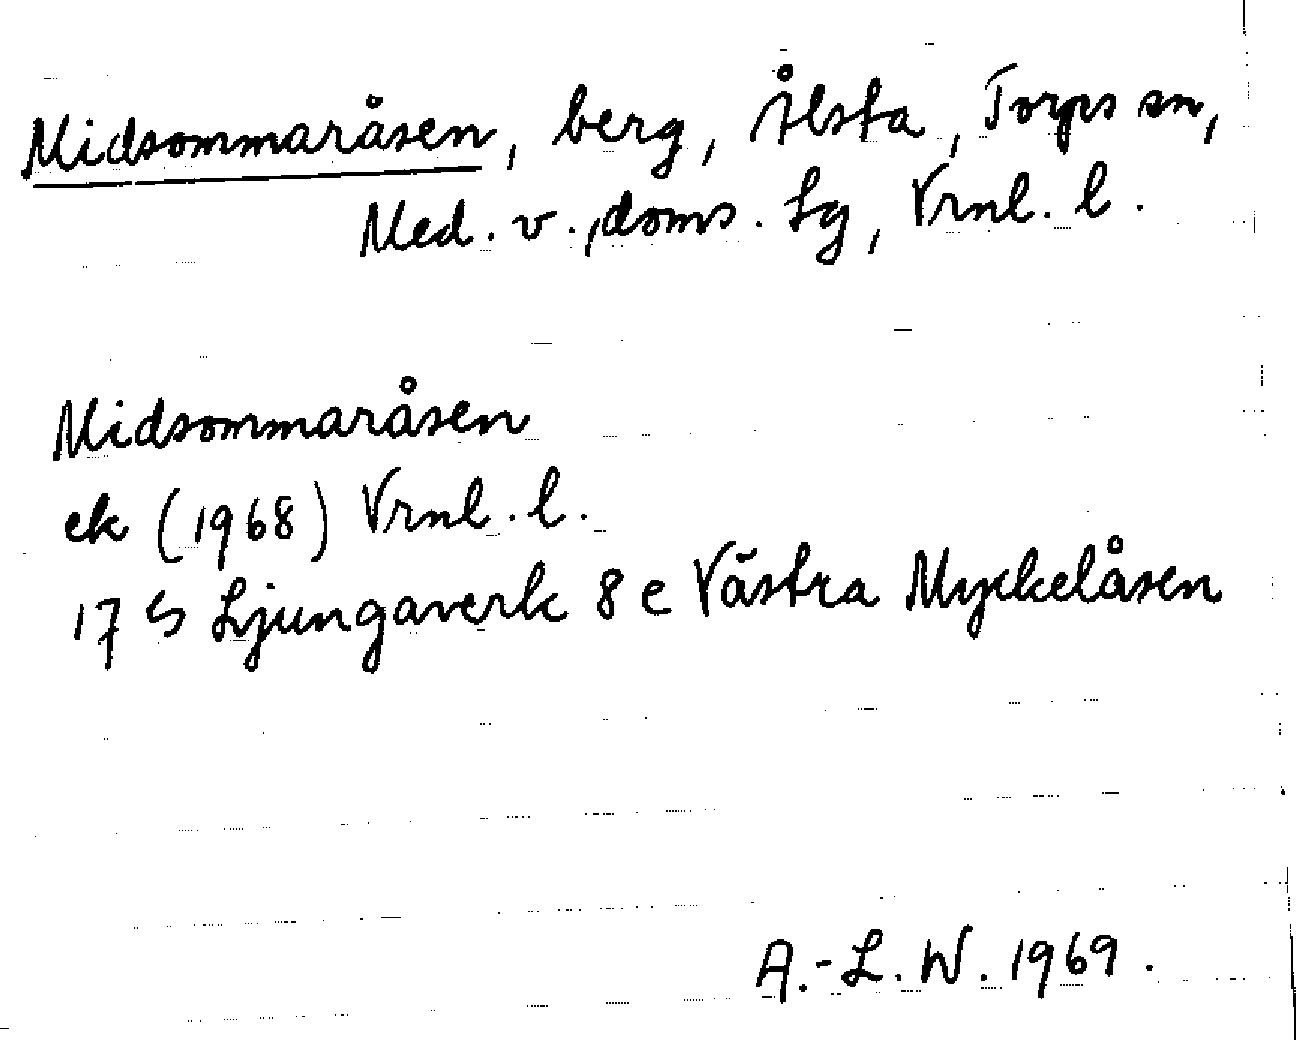 Midsommaråsen, berg, Ålsta, Torps sn,
Med. v., doms. Lg, Vrnl. l.
Midsommaråsen
ek (1968) Vrnl. l.
17 G Ljungaverk 8 e Västra Myckelåsen
A.-L. W. 1969.